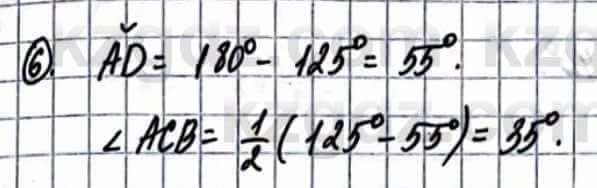 ⑥. ᴗAD = 180° - 125° = 55°.
∠ ACB = 1/2 (125° - 55°) = 35°.